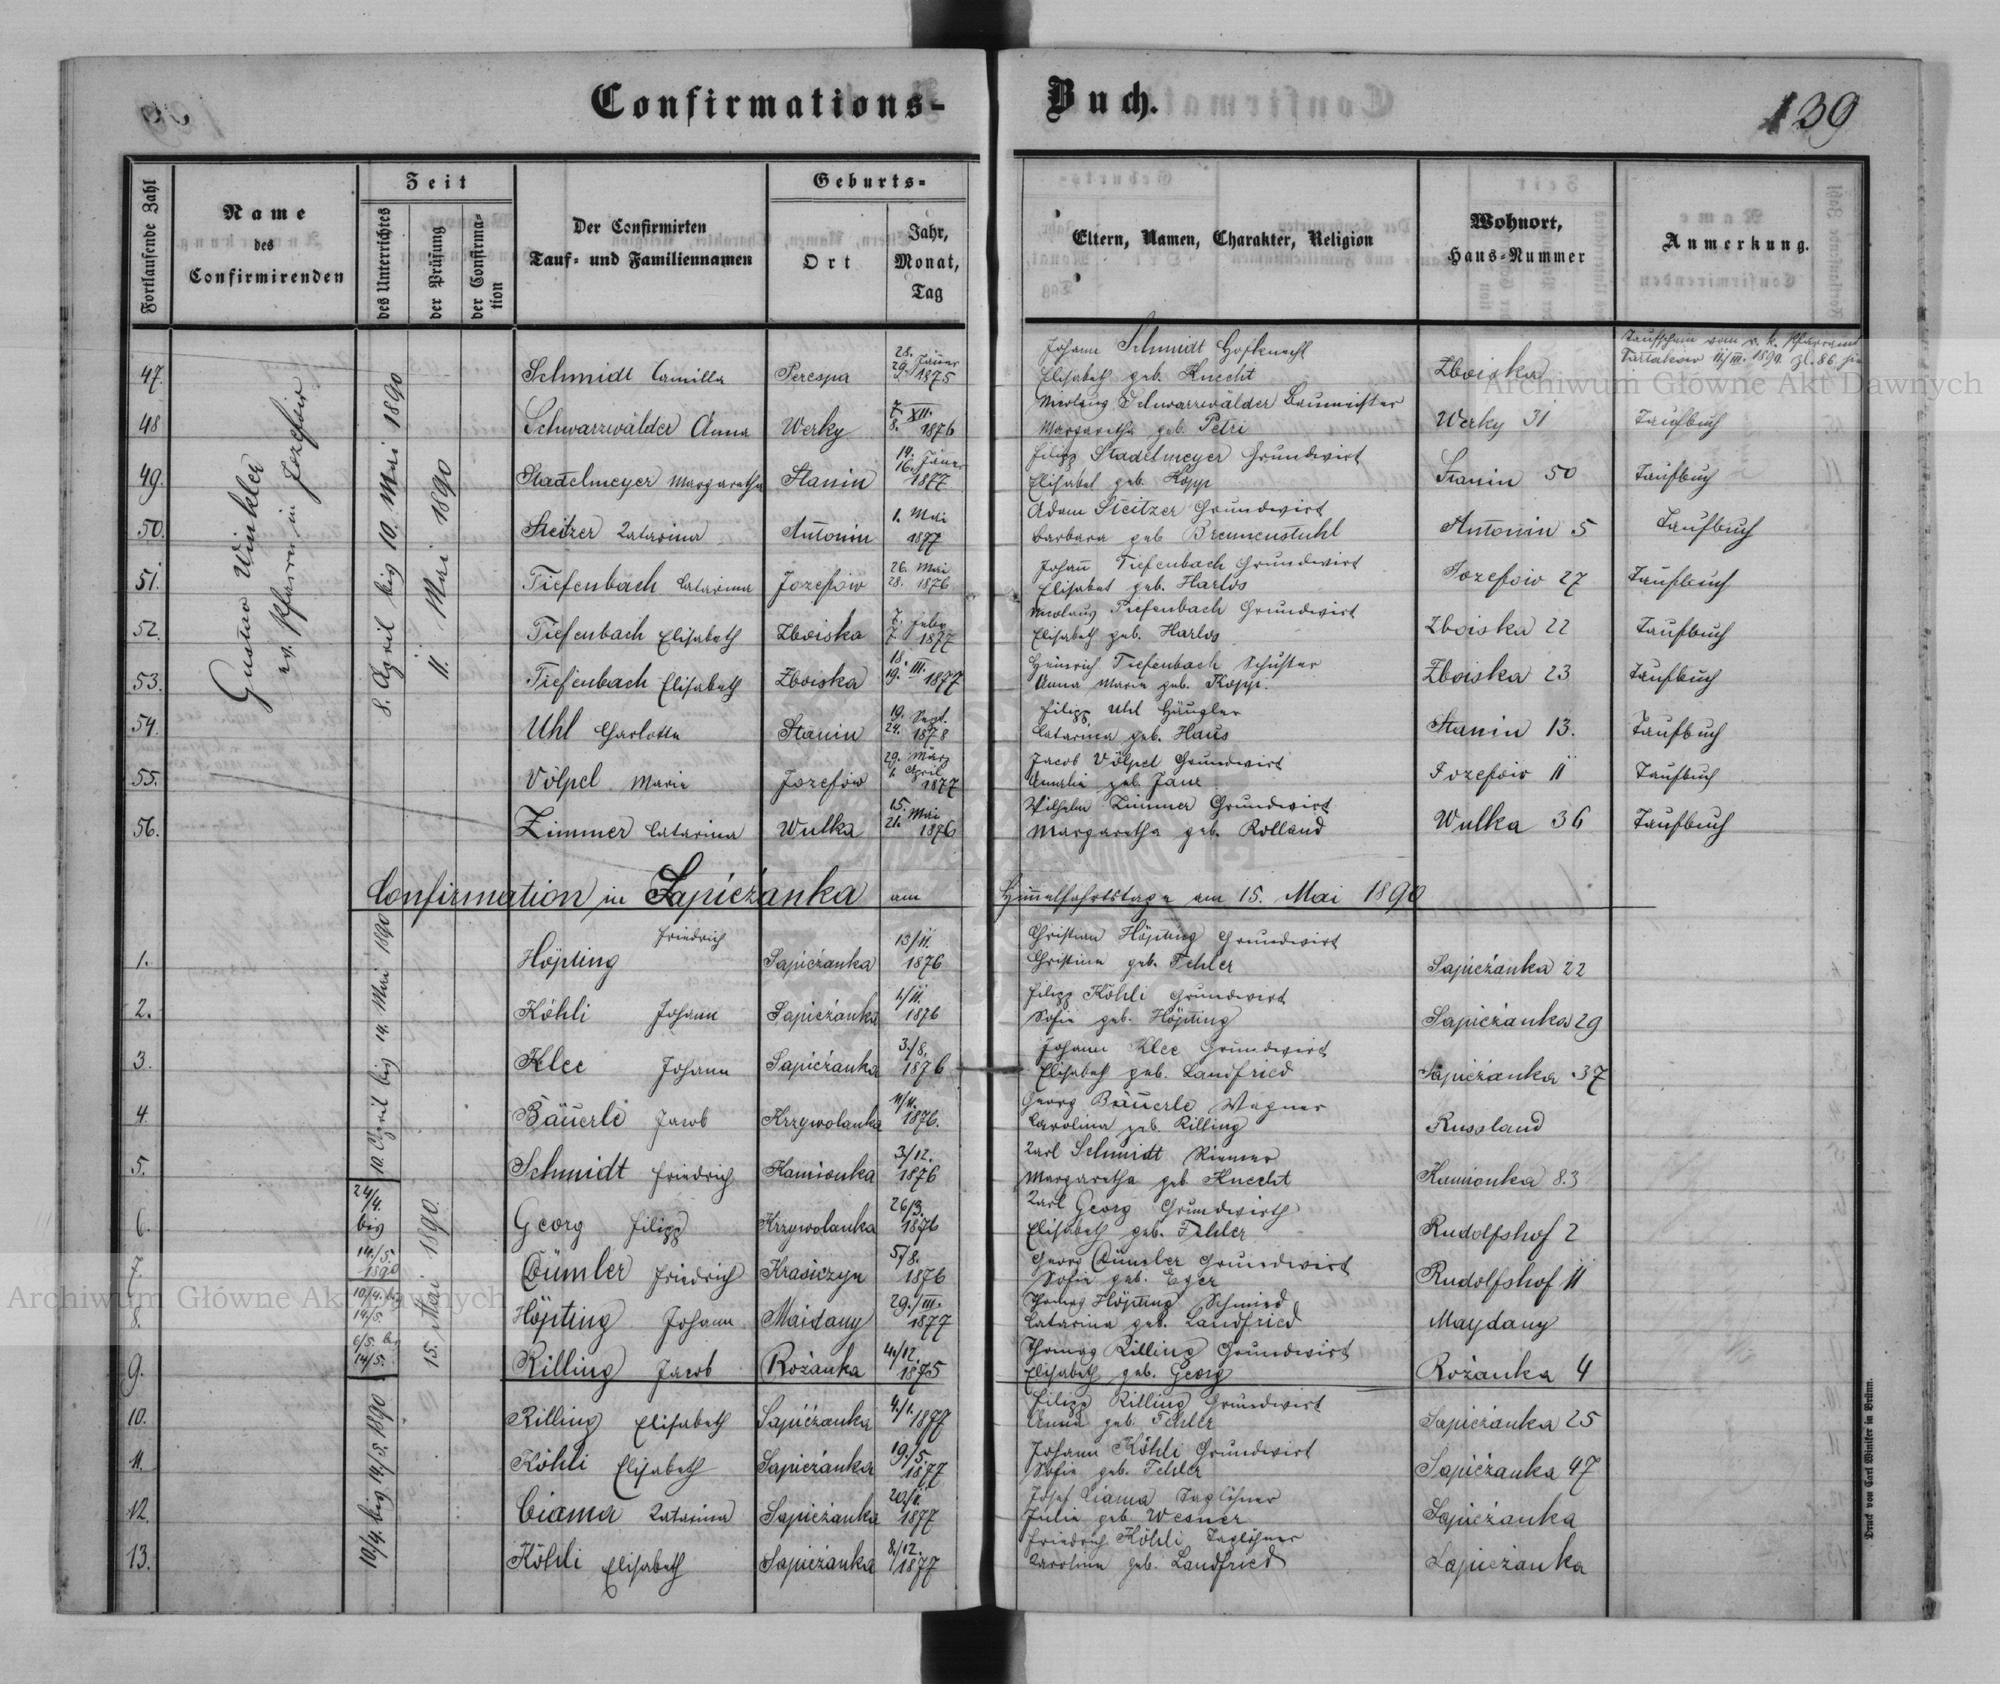 Confirmations-Buch.
139
Fortlaufende Zahl
Name des Confirmirenden
Zeit
des Unterrichtes
der Prüfung
der Confirmation
Der Confirmirten Tauf- und Familiennamen
Geburts-
Ort
Jahr, Monat, Tag
Eltern, Namen, Charakter, Religion
Wohnort, Haus-Nummer
Anmerkung.
Gustav Winkler
ev. Pfarrer in Jozefow
8. April bis 10. Mai 1890
11. Mai 1890
47. Schmidt Camilla Perespa 28. 29. Jäner 1875 Johann Schmidt Hofknecht
Elisabeth geb. Knecht Zboiska
Taufschein vom r. k. Pfarramt
Tartakow 11/III. 1890 Zl. 86.
48 Schwarzwälder Anna Werky 7. 8. XII. 1876 Nicolaus Schwarzwälder Baumeister
Margaretha geb. Petri Werky 31 Taufbuch
49. Stadelmeyer Margaretha Stanin 14. 16. Jäner 1877 Filipp Stadelmeyer Grundwirt
Elisabet geb. Kopp Stanin 50 Taufbuch
50. Steitzer Catarina Antonin 1. Mai 1877 Adam Steitzer Grundwirt
Barbara geb Brennenstuhl Antonin 5 Taufbuch
51. Tiefenbach Catarina Jozefow 26. 28. Mai 1876 Johan̄ Tiefenbach Grundwirt
Elisabet geb. Harlos Jozefow 27 Taufbuch
52. Tiefenbach Elisabeth Zboiska 7. 7. Feber 1877 Nicolaus Tiefenbach Grundwirt
Elisabeth geb. Harlos Zboiska 22 Taufbuch
53. Tiefenbach Elisabeth Zboiska 18. 19. III. 1877 Heinrich Tiefenbach Schuster
Anna Maria geb. Koppi. Zboiska 23 Taufbuch
54. Uhl Charlotte Stanin 19. 24. Sept. 1878 Filipp Uhl Häusler
Catarina geb. Haus Stanin 13. Taufbuch
55. Völpel Marie Jozefow 29. März 1. April 1877 Jacob Völpel Grundwirt
Amalie geb. Janz Jozefow 11 Taufbuch
56. Zimmer Catarina Wulka 15. 21. Mai 1876 Wilhelm Zimmer Grundwirt
Margaretha geb. Rolland Wulka 36 Taufbuch
Confirmation in Sapieżanka am Him̄elfahrtstage am 15. Mai 1890
10. April bis 14. Mai 1890
24/4. bis 14./5. 1890
10/4. bis 14/5.
6/5. bis 14/5.
10/4. bis 14/5. 1890
15. Mai 1890.
1. Höpting Friedrich Sapieżanka 13/11. 1876 Christian Höpting Grundwirt
Christina geb. Fehler Sapieżanka 22
2. Köhli Johann Sapieżanka 1/11. 1876 Filipp Köhli Grundwirt
Sofie geb. Höpting Sapieżanka 29
3. Klee Johann Sapieżanka 3./8. 1876 Johann Klee Grundwirt
Elisabeth geb. Landfried Sapieżanka 37
4. Bäuerle Jacob Krzywolanka 11/11. 1876. Georg Bäuerle Wagner
Carolina geb. Rilling Russland
5. Schmidt Friedrich Kamionka 3/12. 1876 Karl Schmidt Riemer
Margaretha geb Knecht Kamionka 83
6. Georg Filipp Krzywolanka 26/3. 1876 Karl Georg Grundwirth
Elisabeth geb. Fehler Rudolfshof 2
7. Dümler Friedrich Krasiczyn 5./8. 1876 Georg Dümler Grundwirt
Sofie geb. Eger Rudolfshof 11
8. Höpting Johann Maidany 29./III. 1877 Thomas Höpting Schmied
Catarina geb. Landfried Maydany
9. Rilling Jacob Rożanka 4./12. 1875 Thomas Rilling Grundwirt
Elisabeth geb. Georg Rożanka 4
10. Rilling Elisabeth Sapieżanka 4./1. 1877 Filipp Rilling Grundwirt
Anna geb. Fehler Sapieżanka 25
11. Köhli Elisabeth Sapieżanka 19./5. 1877 Johann Köhli Grundwirt
Sofie geb. Fehler Sapieżanka 47
12. Ciama Catarina Sapieżanka 1877 Josef Ciama Taglöhner
Julie geb. Wesner Sapieżanka
13. Köhli Elisabeth Sapieżanka 8./12. 1877 Friedrich Köhli Taglöhner
Caroline geb. Landfried Sapieżanka
Druck von Carl Winiker in Brünn.
Archiwum Główne Akt Dawnych
Archiwum Główne Akt Dawnych